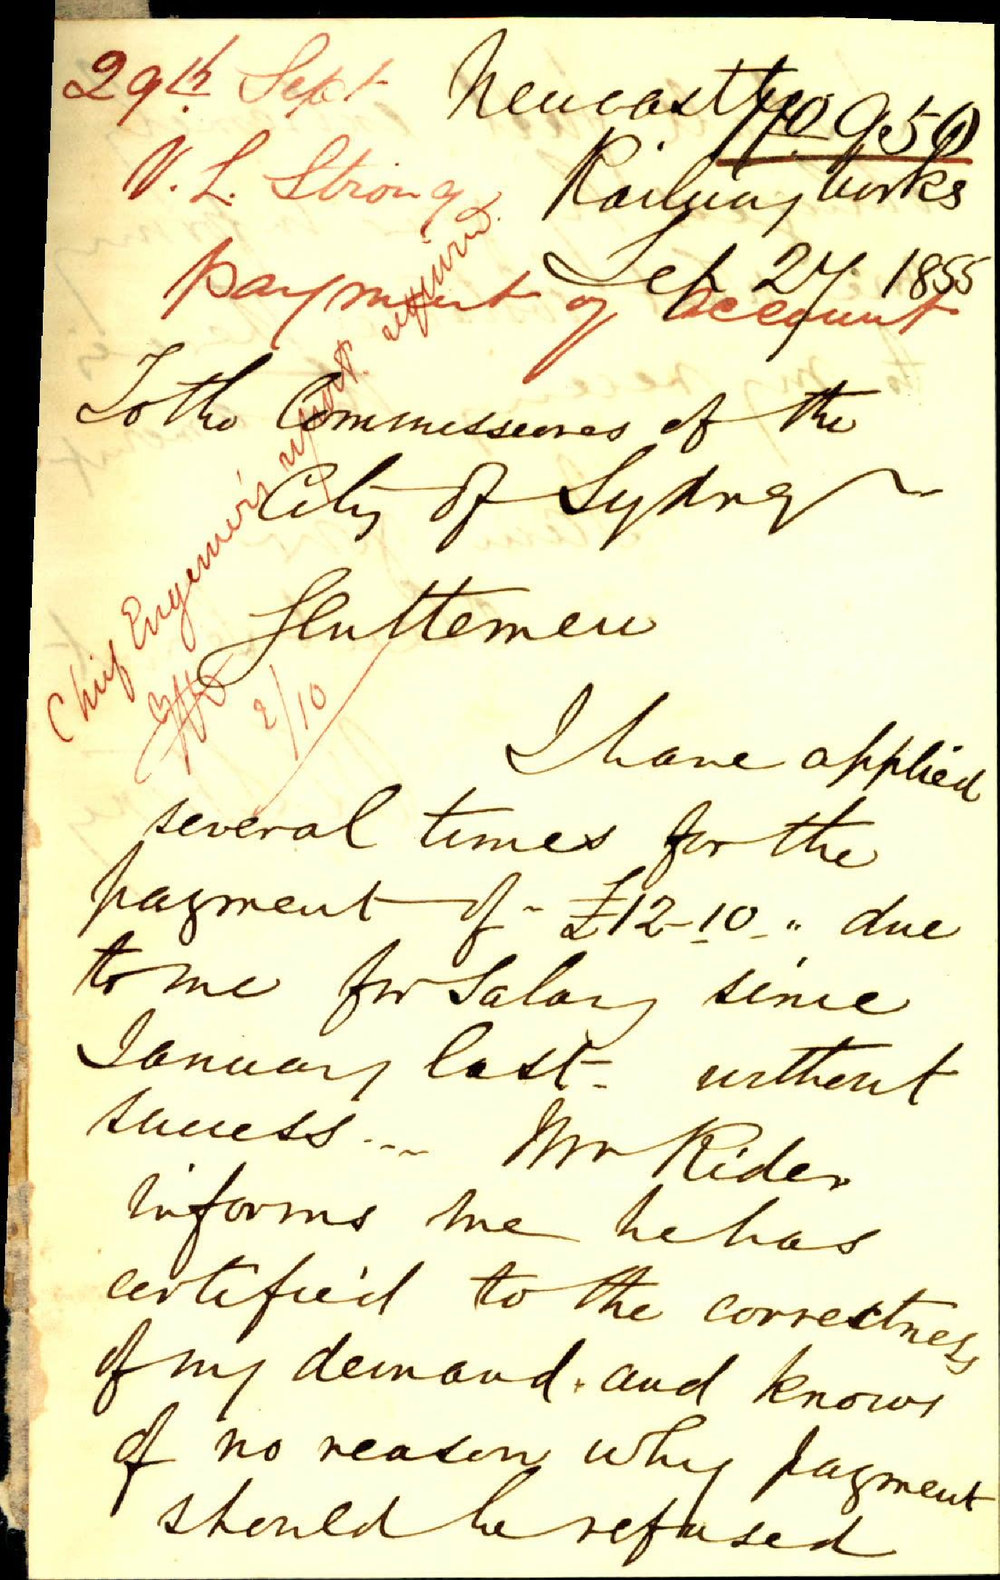 29th Sept
V. L. Strong
payment of account
Newcastle
No 950
Railway works
Sep 27 1855
To the Commissioners of the
City of Sydney
Gentlemen
Chief Engineer's report required
2/10
I have applied
several times for the
payment of £12-10-" due
to me for Salary since
January last - without
success --- Mr Rider
informs me he has
certified to the correctness
of my demand. and knows
of no reason why payment
should be refused